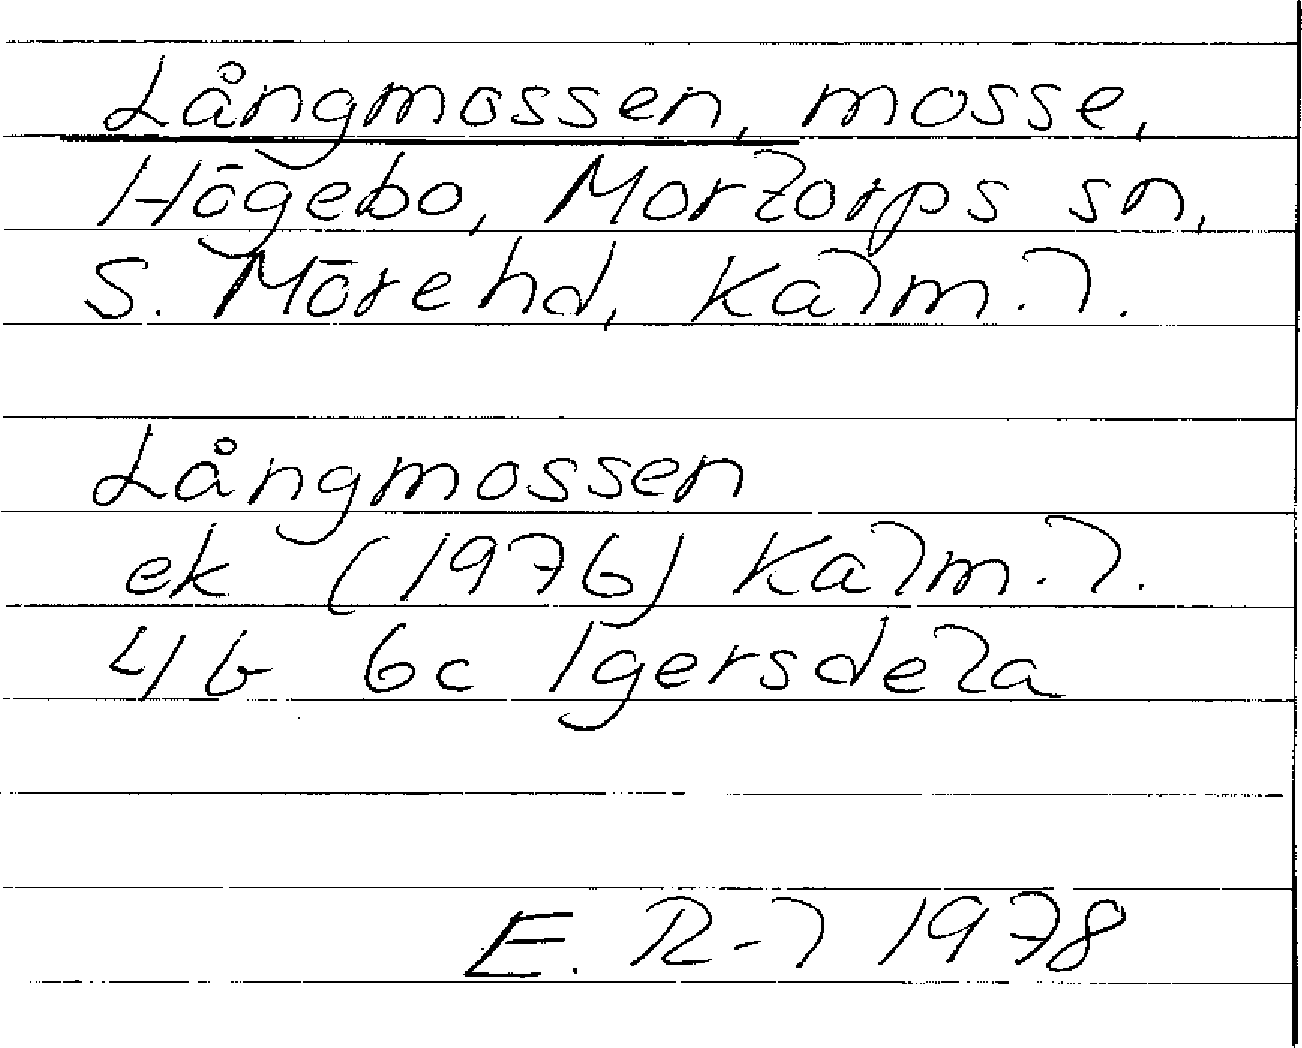 Långmossen, mosse,
Högebo, Mortorps sn,
S. Möre hd, Kalm. l.
Långmossen
ek (1976) Kalm. l.
4G 6c Igersdela
E. R-l 1978